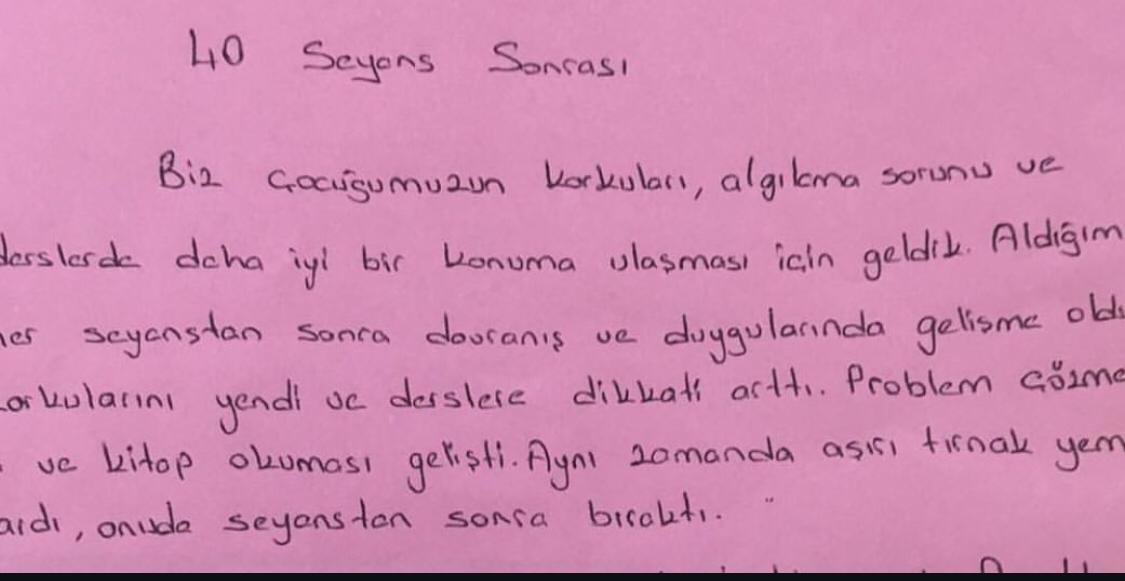 40 Seyans Sonrası
Biz Çocuğumuzun korkuları, algılama sorunu ve
derslerde daha iyi bir konuma ulaşması için geldik. Aldığım
her seyanstan sonra davranış ve duygularında gelişme oldu
korkularını yendi ve derslere dikkati arttı. Problem Çözme
ve kitap okuması gelişti. Aynı zamanda aşırı tırnak yem
ardı, onuda seyanstan sonra bıraktı. "